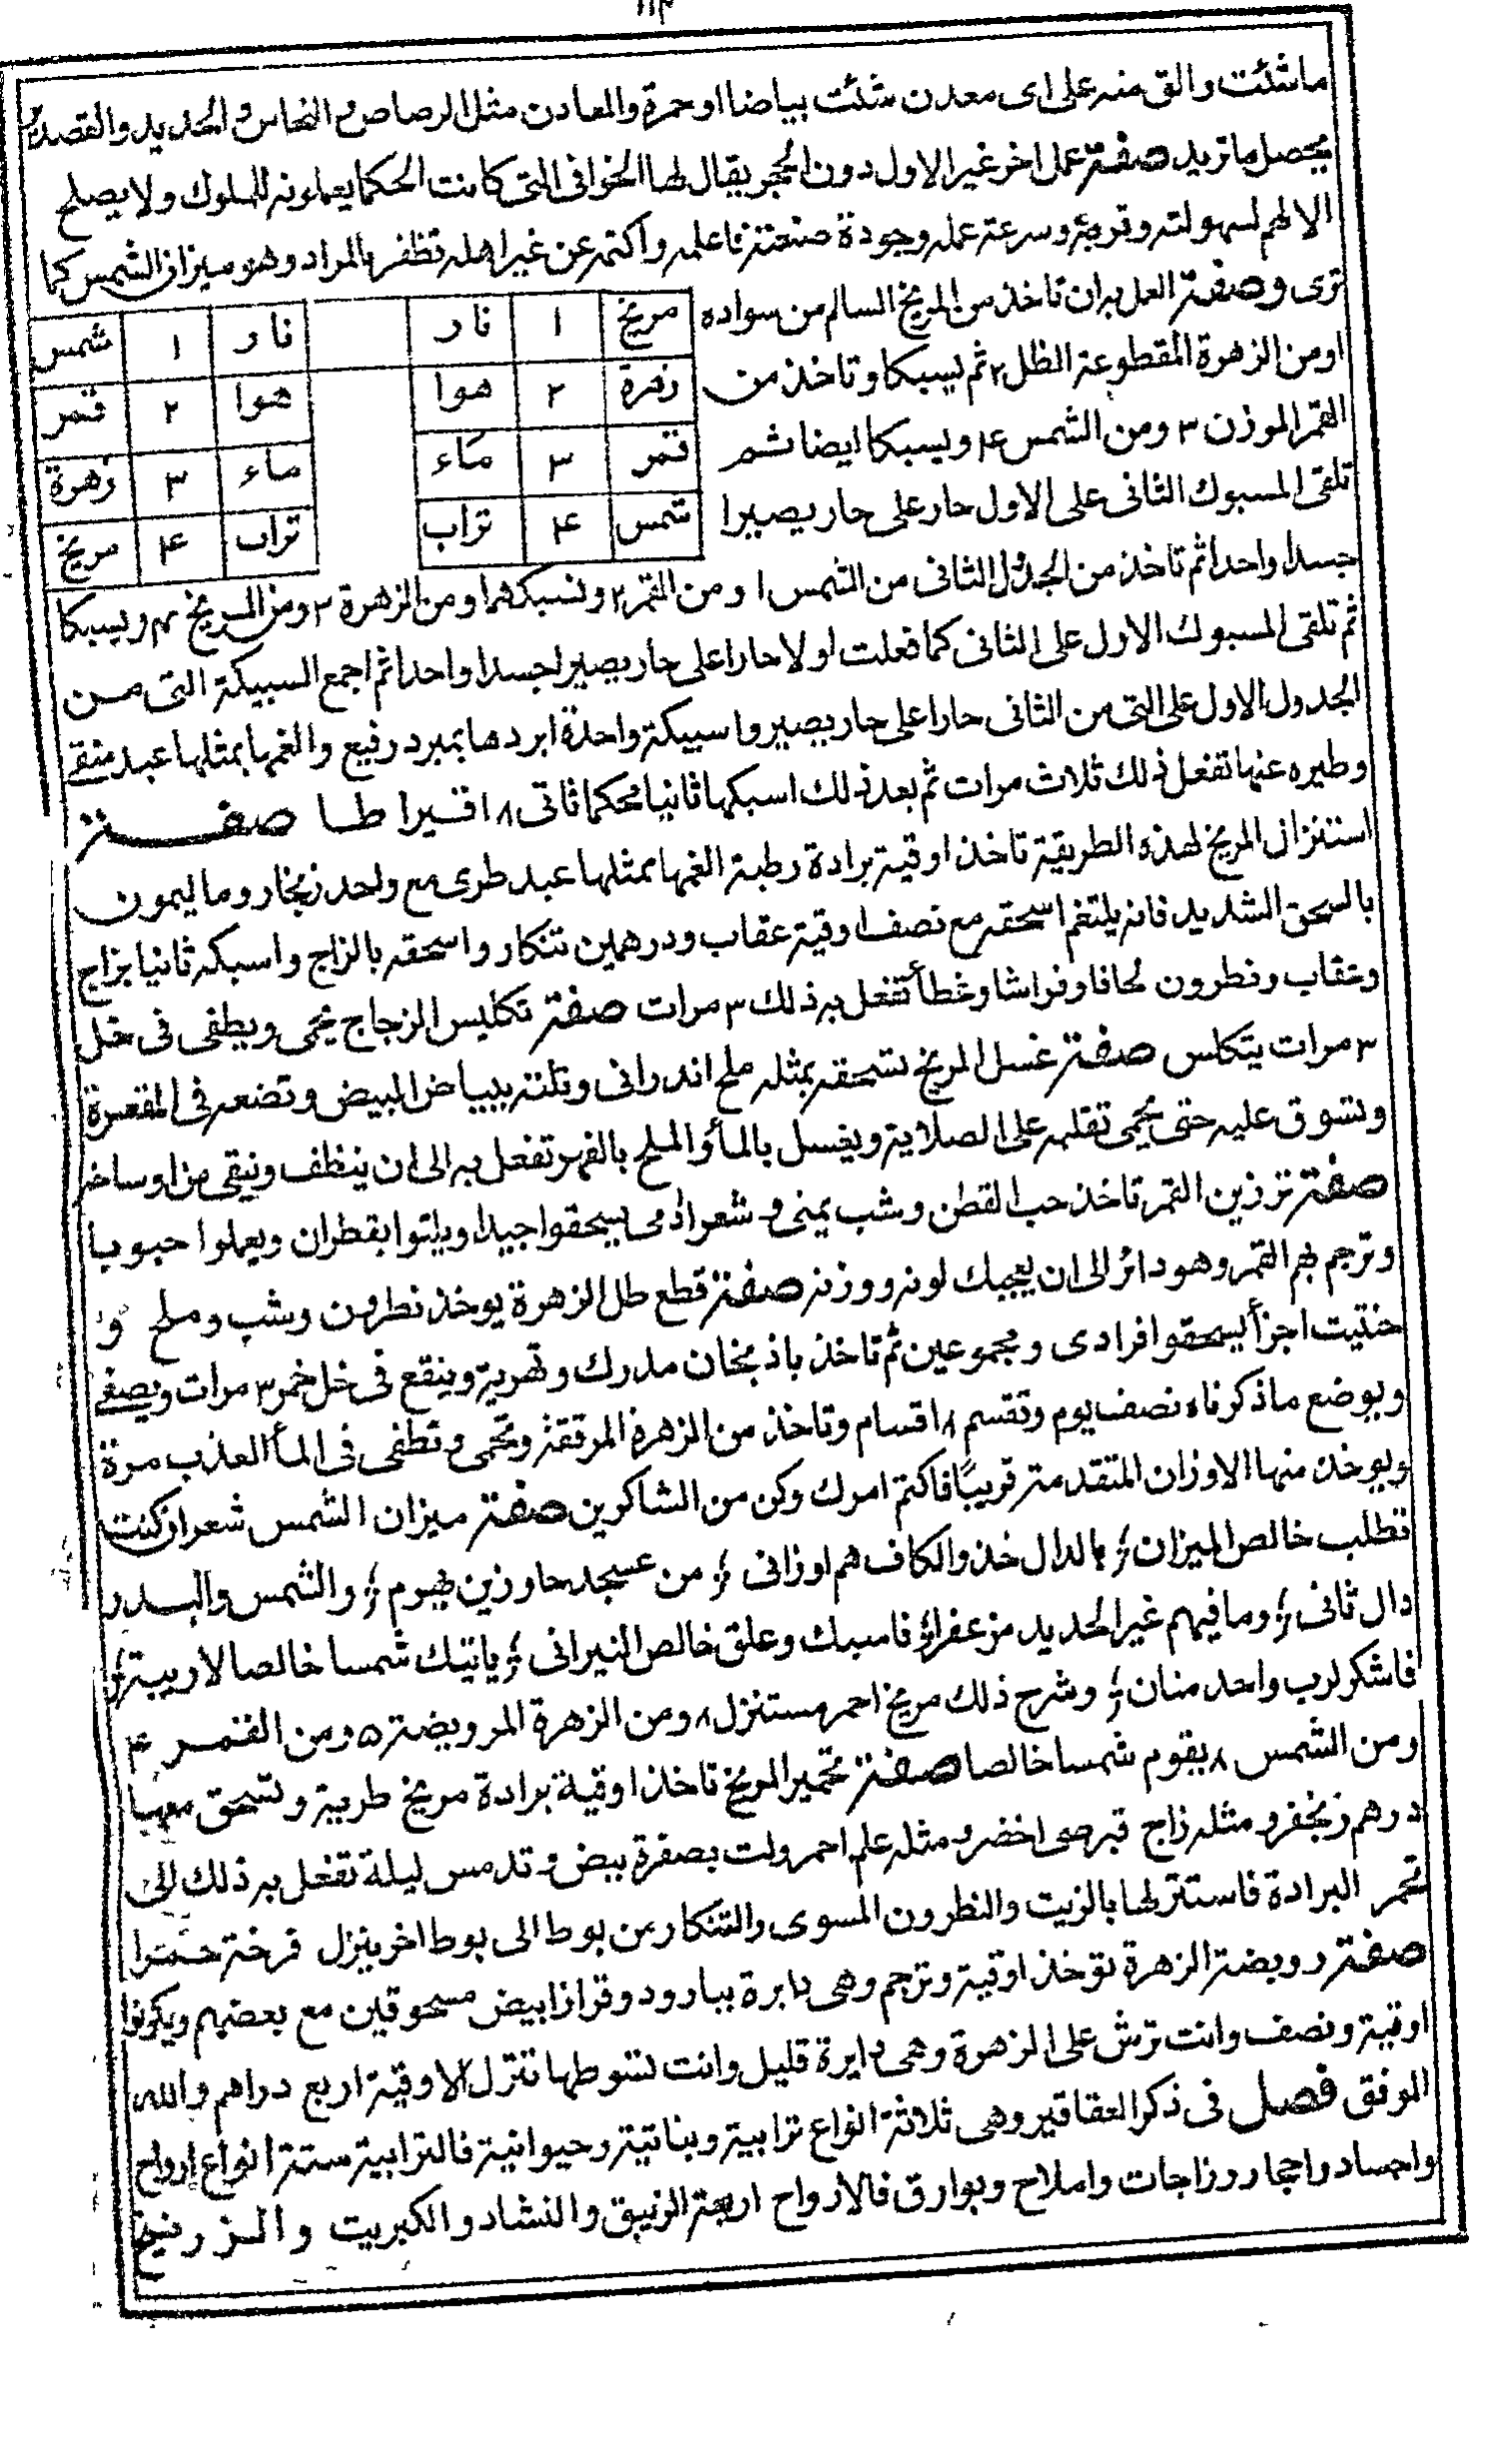 ١١٣
ماشئت والق منه على اى معدن شئت بياضا او حمرة والمعادن مثل الرصاص والنحاس والحديد والقصدير
يحصل ماتريد صفة عمل اخر غير الاول دون الحجر يقال لها الخوافى التى كانت الحكما يعملونه للملوك ولا يصلح
الا لهم لسهولته وقربه وسرعة عمله وجودة صنعته فاعلمه واكتمه عن غير اهله تظفر بالمراد وهو ميزان الشمس كما
ترى وصفة العمل به ان تاخذ من المريخ السالم من سواده
اومن الزهرة المقطوعة الظل ٢ ثم يسبكا وتاخذ من
القمر الموزن ٣ ومن الشمس ٤ ويسبكا ايضا ثم
تلقى المسبوك الثانى على الاول حار على حار يصيرا
مريخ ١ نار نار ١ شمس
زهرة ٢ هوا هوا ٢ قمر
قمر ٣ ماء ماء ٣ زهرة
شمس ٤ تراب تراب ٤ مريخ
جسدا واحدا ثم تاخذ من الجدول الثانى من الشمس ١ ومن القمر ٢ وتسبكهما ومن الزهرة ٣ ومن المريخ ٤ ويسبكا
ثم تلقى المسبوك الاول على الثانى كما فعلت اولا حارا على حار يصيرا جسدا واحدا ثم اجمع السبيكة التى من
الجدول الاول على التى من الثانى حارا على حار يصيروا سبيكة واحدة ابردها بمبرد رفيع والغمها بمثلها عبد منقى
وطيره عنها تفعل ذلك ثلاث مرات ثم بعد ذلك اسبكها ثانيا محكما ثاتى ١٨ قيراطا صفة
استنزال المريخ لهذه الطريقة تاخذ اوقية برادة رطبة الغمها بمثلها عبد طرى مع واحد زنجار وما ليمون
بالسحق الشديد فانه يلتغم اسحقه مع نصف اوقية عقاب ودرهمين تنكار واسحقه بالزاج واسبكه ثانيا بزاج
وعقاب ونطرون لحافا وفراشا وغطأ تفعل به ذلك ٣ مرات صفة تكليس الزجاج يحمى ويطفى فى خل
٣ مرات يتكلس صفة غسل المريخ تسحقه بمثله ملح اندرانى وتلته ببياض البيض وتضعه فى المقعرة
وتسوق عليه حتى يحمى تقلبه على الصلاية ويغسل بالمأ والملح بالفهر تفعل به الى ان ينظف وينقى من اوساخه
صفة ترزين القمر تاخذ حب القطن وشب يمنى وشعر ادمى يسحقوا جيدا ويلتوا بقطران ويعملوا حبوبا
وترجم بهم القمر وهو دائر الى ان يعجبك لونه ووزنه صفة قطع ظل الزهرة يوخذ نطرون وشب وملح و
حنتيت اجزأ يسحقوا فرادى ومجموعين ثم تاخذ باذنجان مدرك وتهريه وينقع فى خل خمر ٣ مرات ويصفى
ويوضع ماذكرناه نصف يوم وتقسم ٨ اقسام وتاخذ من الزهرة المرققة وتحمى وتطفى فى المأ العذب مرة
ويوخذ منها الاوزان المتقدمة قريبًا فاكتم امرك وكن من الشاكرين صفة ميزان الشمس شعر ان كنت
تطلب خالص الميزان ؛ بالدال خذ والكاف هم اوزانى ؛ من عسجد حاوزين بهرم ؛ والشمس والبدر
دال ثانى ؛ وما فيهم غير الحديد مزعفرا ؛ فاسبك وعلق خالص النيرانى ؛ ياتيك شمسا خالصا لاريبة ؛
فاشكر لرب واحد منان ؛ وشرح ذلك مريخ احمر مستنزل ٨ ومن الزهرة المروبضة ٥ ومن القمر ٤
ومن الشمس ٨ يقوم شمسا خالصا صفة تحمير المريخ تاخذ اوقية برادة مريخ طرية وتسحق معها
درهم زنجفر ومثله زاج قبرصى اخضر ومثله علم احمر ولت بصفرة بيض وتدمس ليلة تفعل به ذلك الى
تحمر البرادة فاستنزلها بالزيت والنطرون المسوى والتنكار من بوط الى بوط اخر ينزل فرخة حمرا
صفة روبضة الزهرة توخذ اوقية وترجم وهى دايرة ببارود وقزاز ابيض مسحوقين مع بعضهم ويكونوا
اوقية ونصف وانت ترش على الزهرة وهى دايرة قليل وانت تسوطها تنزل الاوقية اربع دراهم والله
الموفق فصل فى ذكر العقاقير وهى ثلاثة انواع ترابية ونباتية وحيوانية فالترابية ستة انواع ارواح
واجساد واحجار وزاجات واملاح وبوارق فالارواح اربعة الزيبق والنشادر والكبريت والزرنيخ